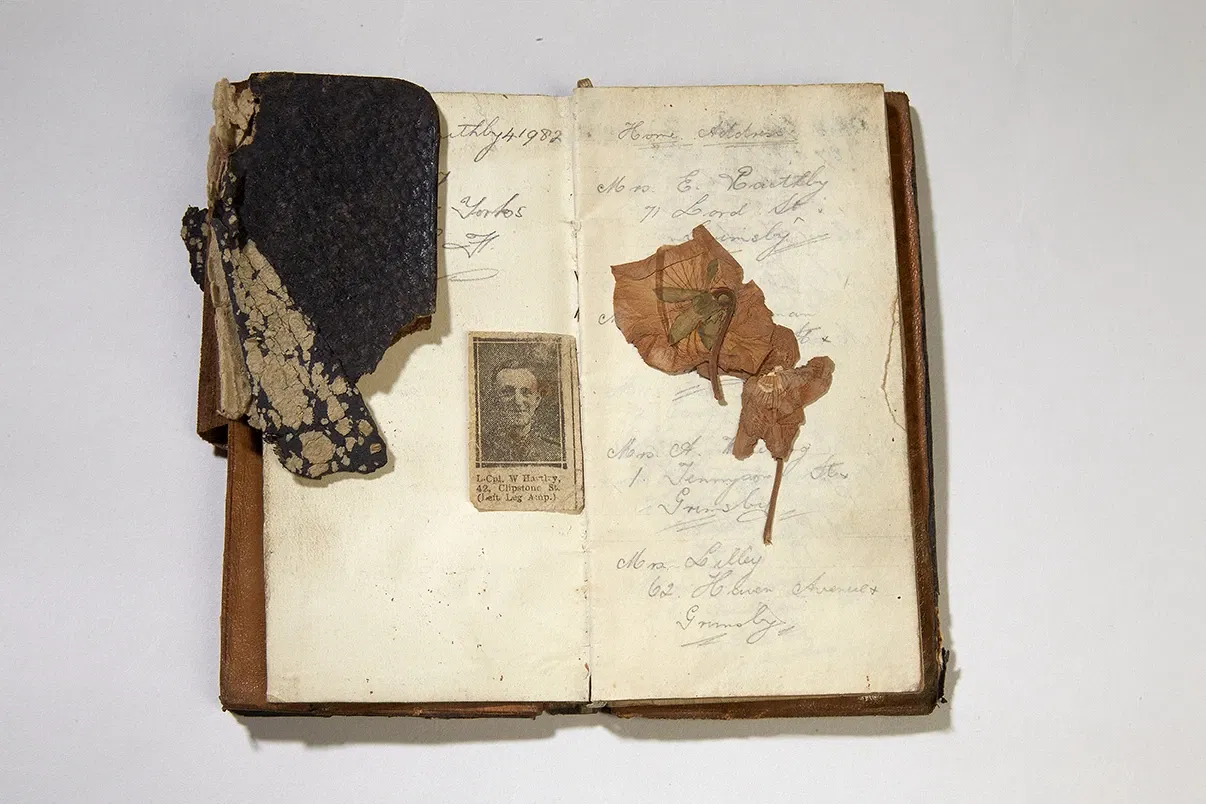 41982
Yorks
L-Cpl. W Hartley,
42, Clipstone St.
(Left Leg Amp.)
Home Address
Mrs. E. Raithby
71 Lord St.
Grimsby
Mrs. A.
1. Tennyson St
Grimsby
Mrs. Lilley
62. Haven Avenue
Grimsby